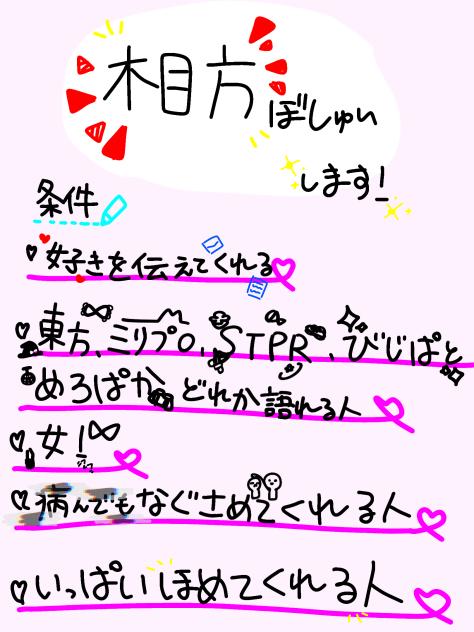 相方
ぼしゅう
します!
条件
好きを伝えてくれる
東方、ミリプロ、STPR、びじぱと
めろぱか どれか語れる人
女!
病んでもなぐさめてくれる人
いっぱいほめてくれる人